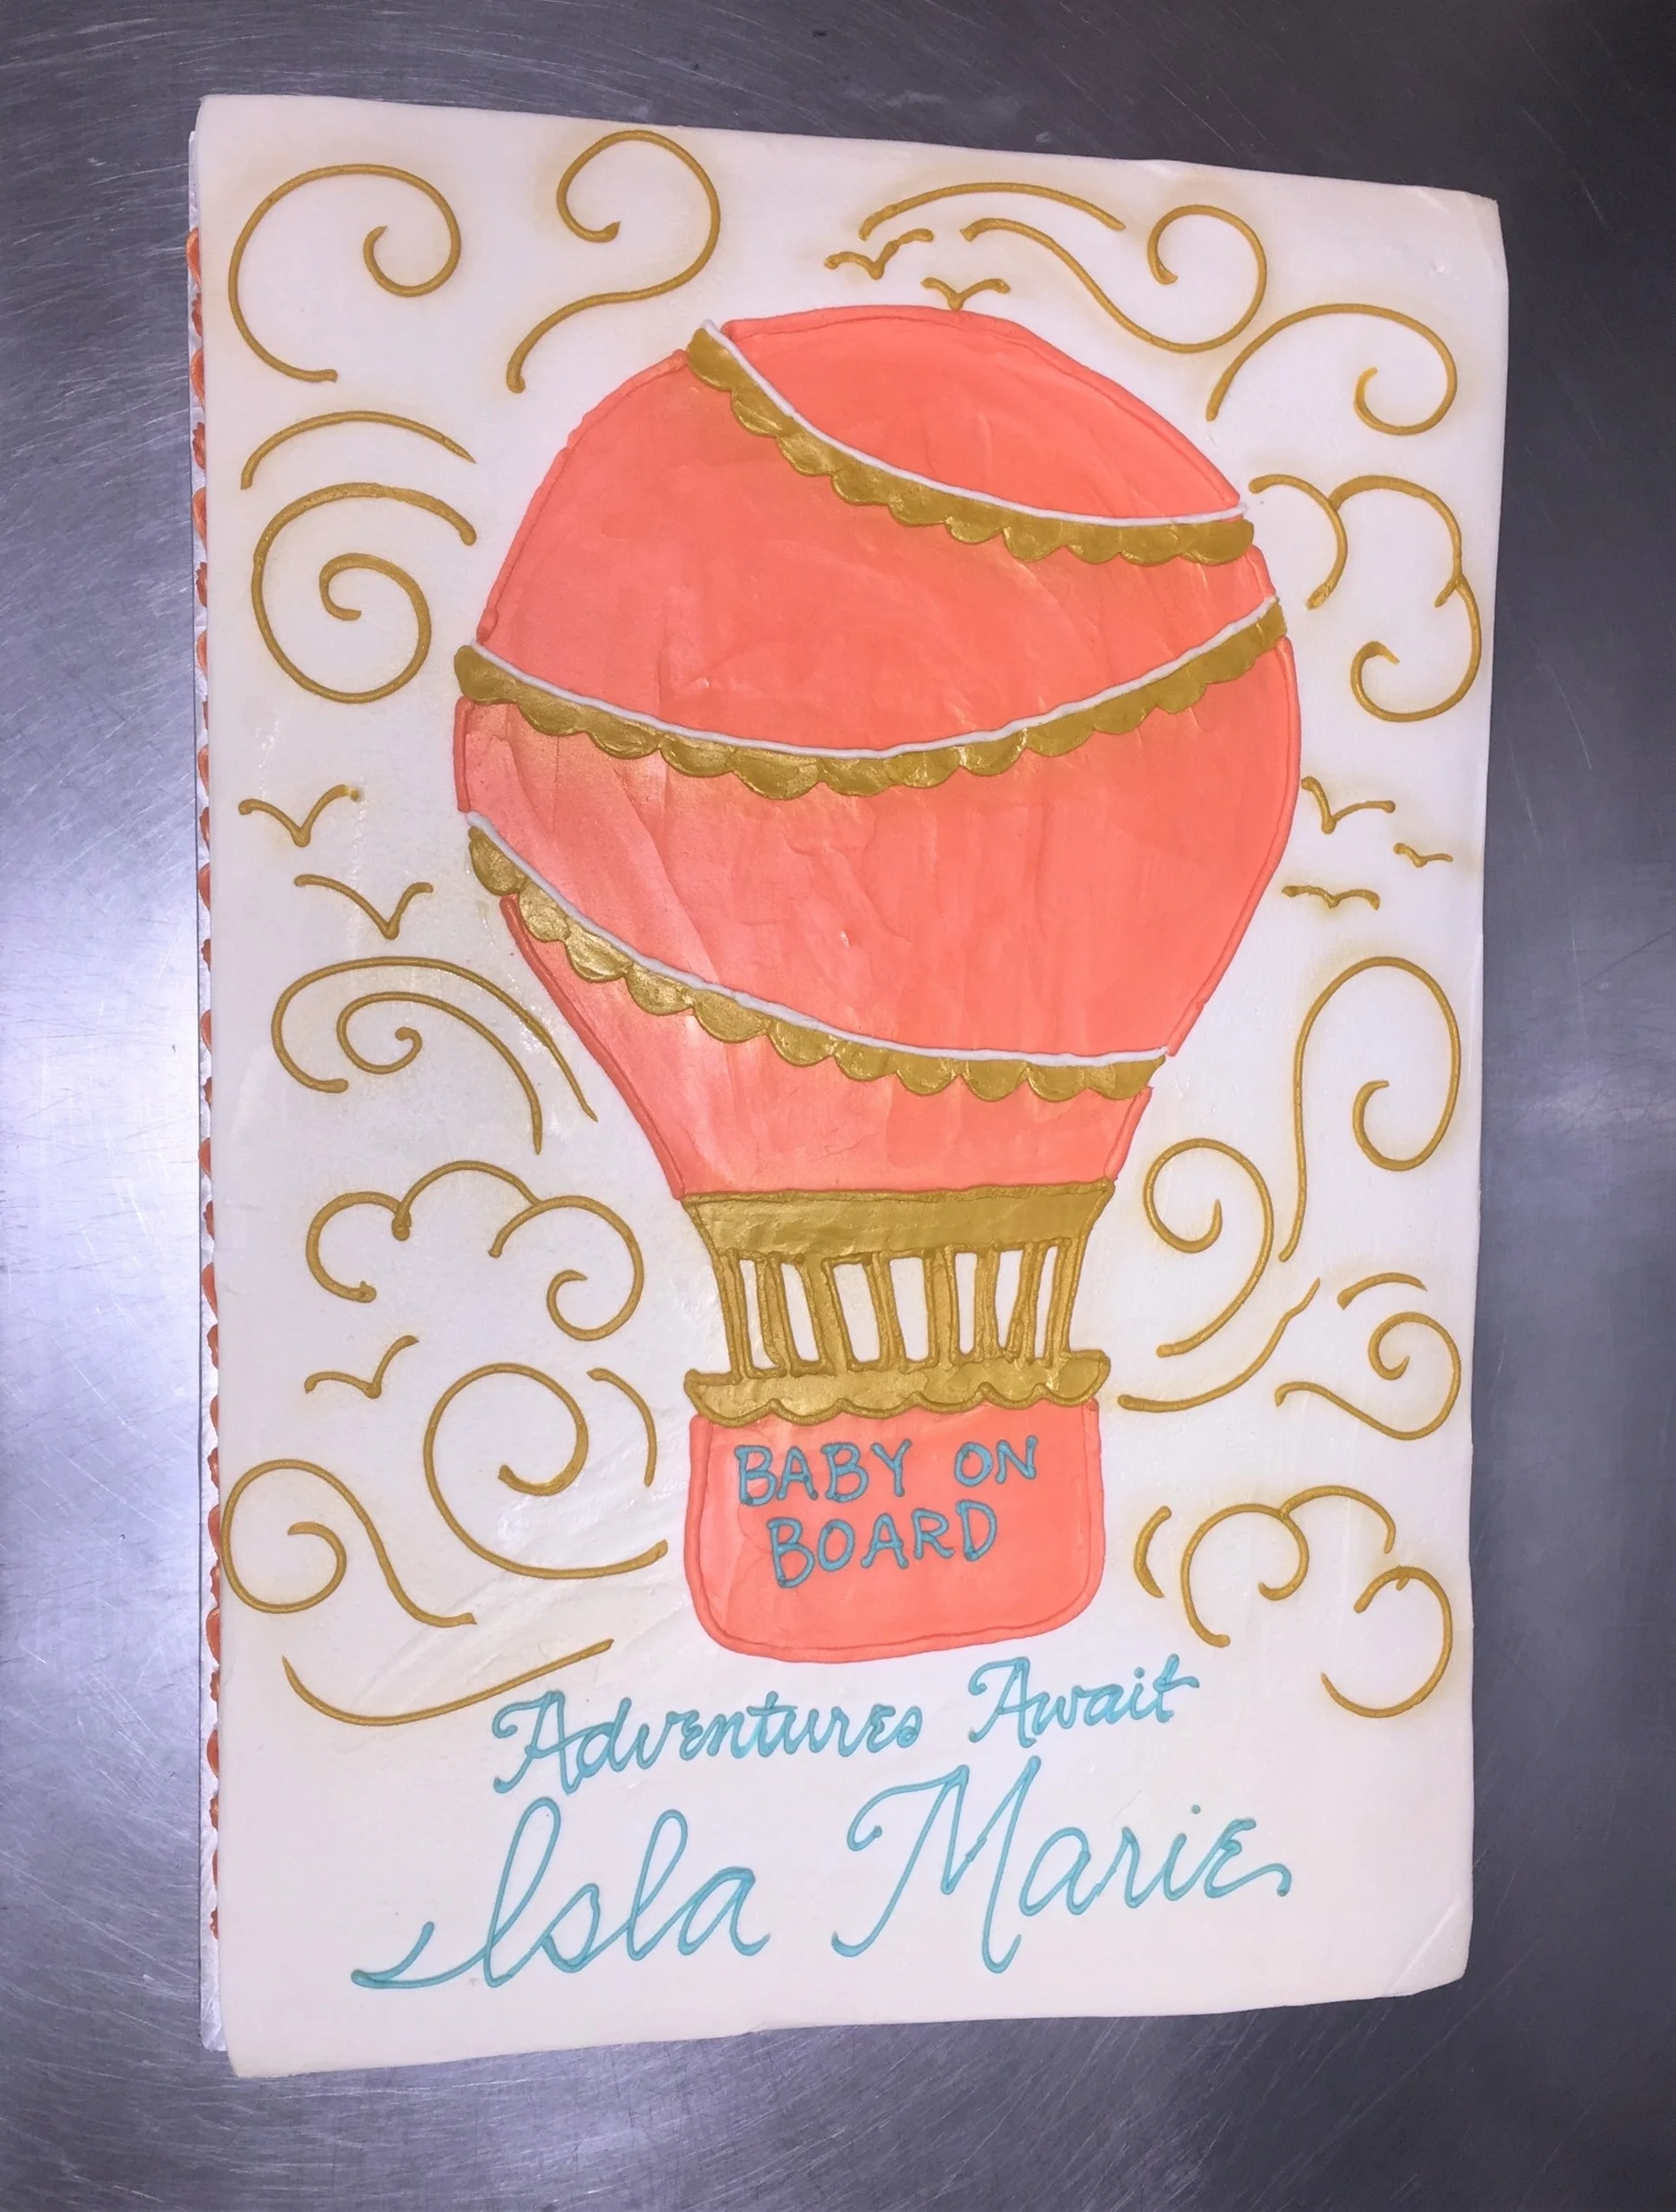 BABY ON
BOARD
Adventures Await
Isla Marie